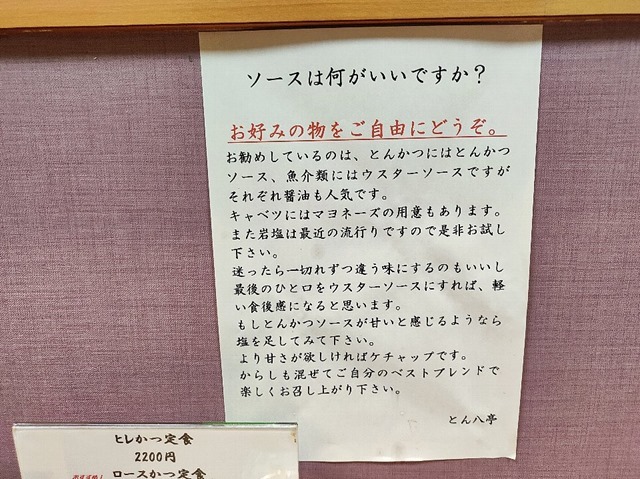 ソースは何がいいですか？
お好みの物をご自由にどうぞ。
お勧めしているのは、とんかつにはとんかつ
ソース、魚介類にはウスターソースですが
それぞれ醤油も人気です。
キャベツにはマヨネーズの用意もあります。
また岩塩は最近の流行りですので是非お試し
下さい。
迷ったら一切れずつ違う味にするのもいいし
最後のひと口をウスターソースにすれば、軽
い食後感になると思います。
もしとんかつソースが甘いと感じるようなら
塩を足してみて下さい。
より甘さが欲しければケチャップです。
からしも混ぜてご自分のベストブレンドで
楽しくお召し上がり下さい。
とん八亭
ヒレかつ定食
2200円
おすすめ！
ロースかつ定食